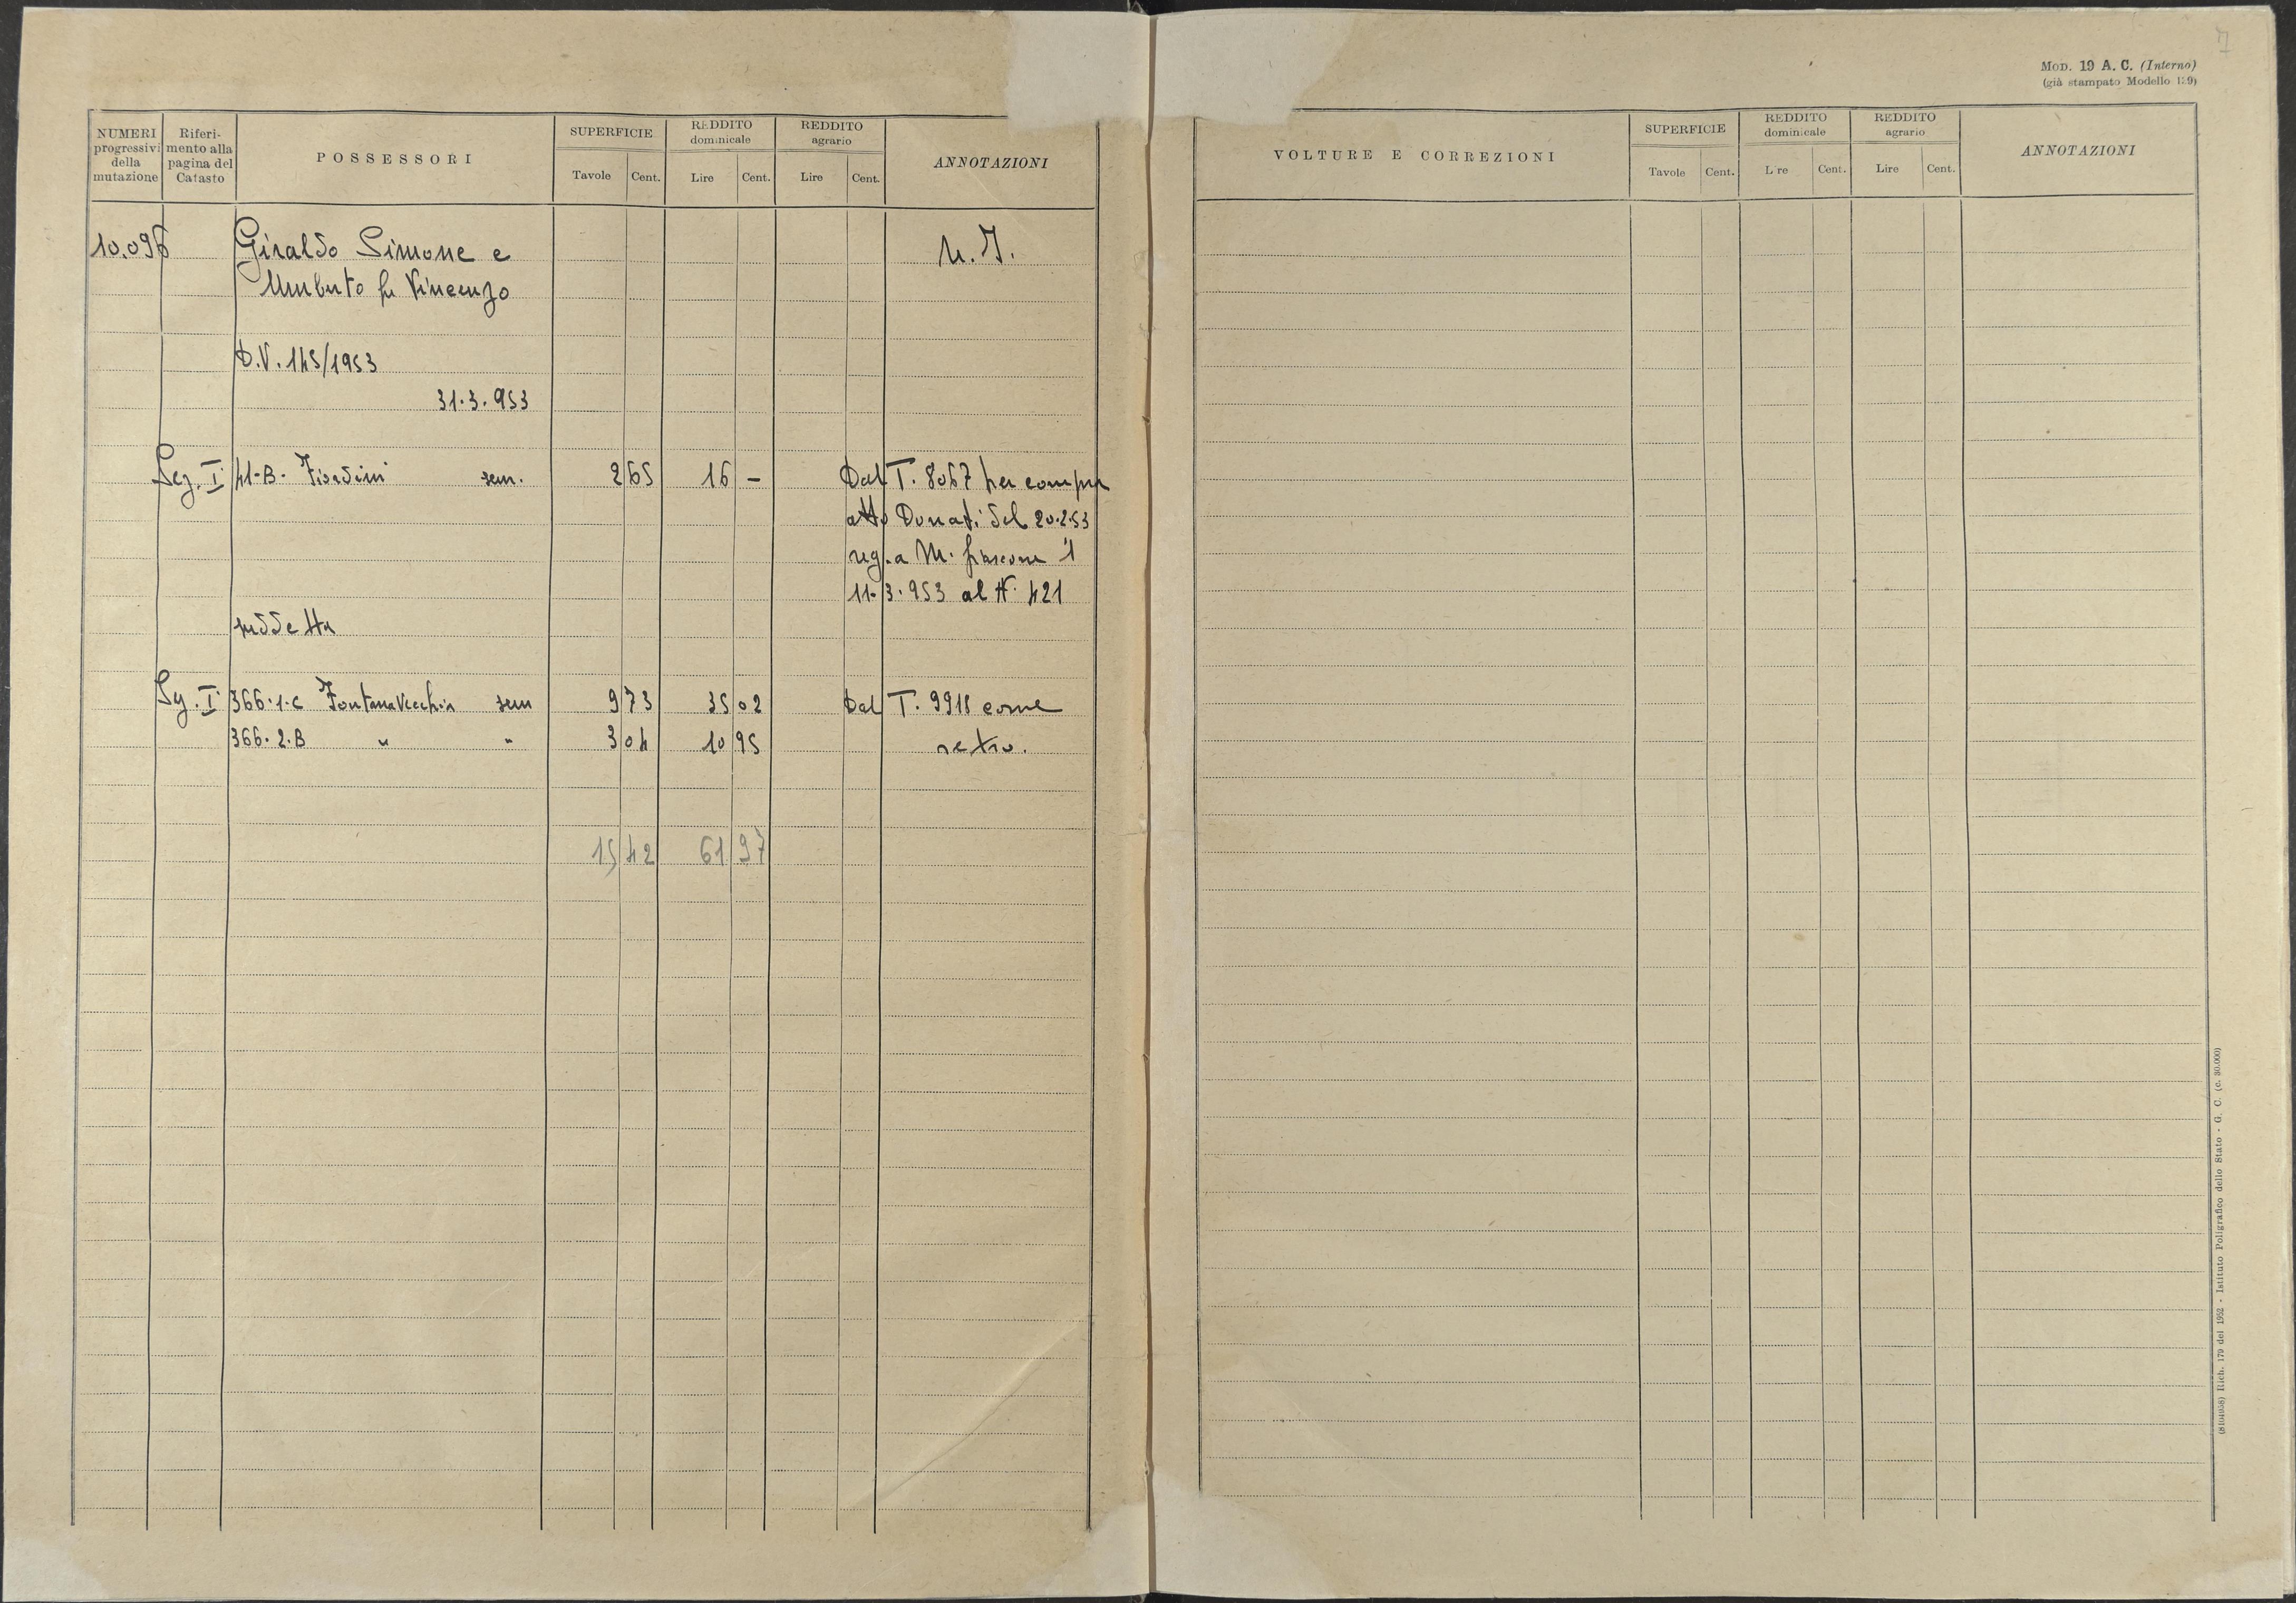 NUMERI progressivi della mutazione
Riferimento alla pagina del Catasto
POSSESSORI
SUPERFICIE
Tavole Cent.
REDDITO dominicale
Lire Cent.
REDDITO agrario
Lire Cent.
ANNOTAZIONI
10.096 Giraldo Simone e U.I.
Umberto fu Vincenzo
D.V. 145/1953
31.3.953
Sez. I 41-B- Fiordini sem. 2 65 16 - Dal T. 8067 per compra
atto Donati del 20.2.53
reg. a M. fiascone il
11.3.953 al N. 421
suddetta
Sez. I 366.1.C Fontanavecchia sem 9 73 35 02 Dal T. 9918 come
366.2.B " " 3 04 10 95 retro.
15 42 61 97
7
MOD. 19 A. C. (Interno)
(già stampato Modello 129)
VOLTURE E CORREZIONI
SUPERFICIE
Tavole Cent.
REDDITO dominicale
L re Cent.
REDDITO agrario
Lire Cent.
ANNOTAZIONI
Rich. 179 del 1952 - Istituto Poligrafico dello Stato - G. C. (c. 30.000)